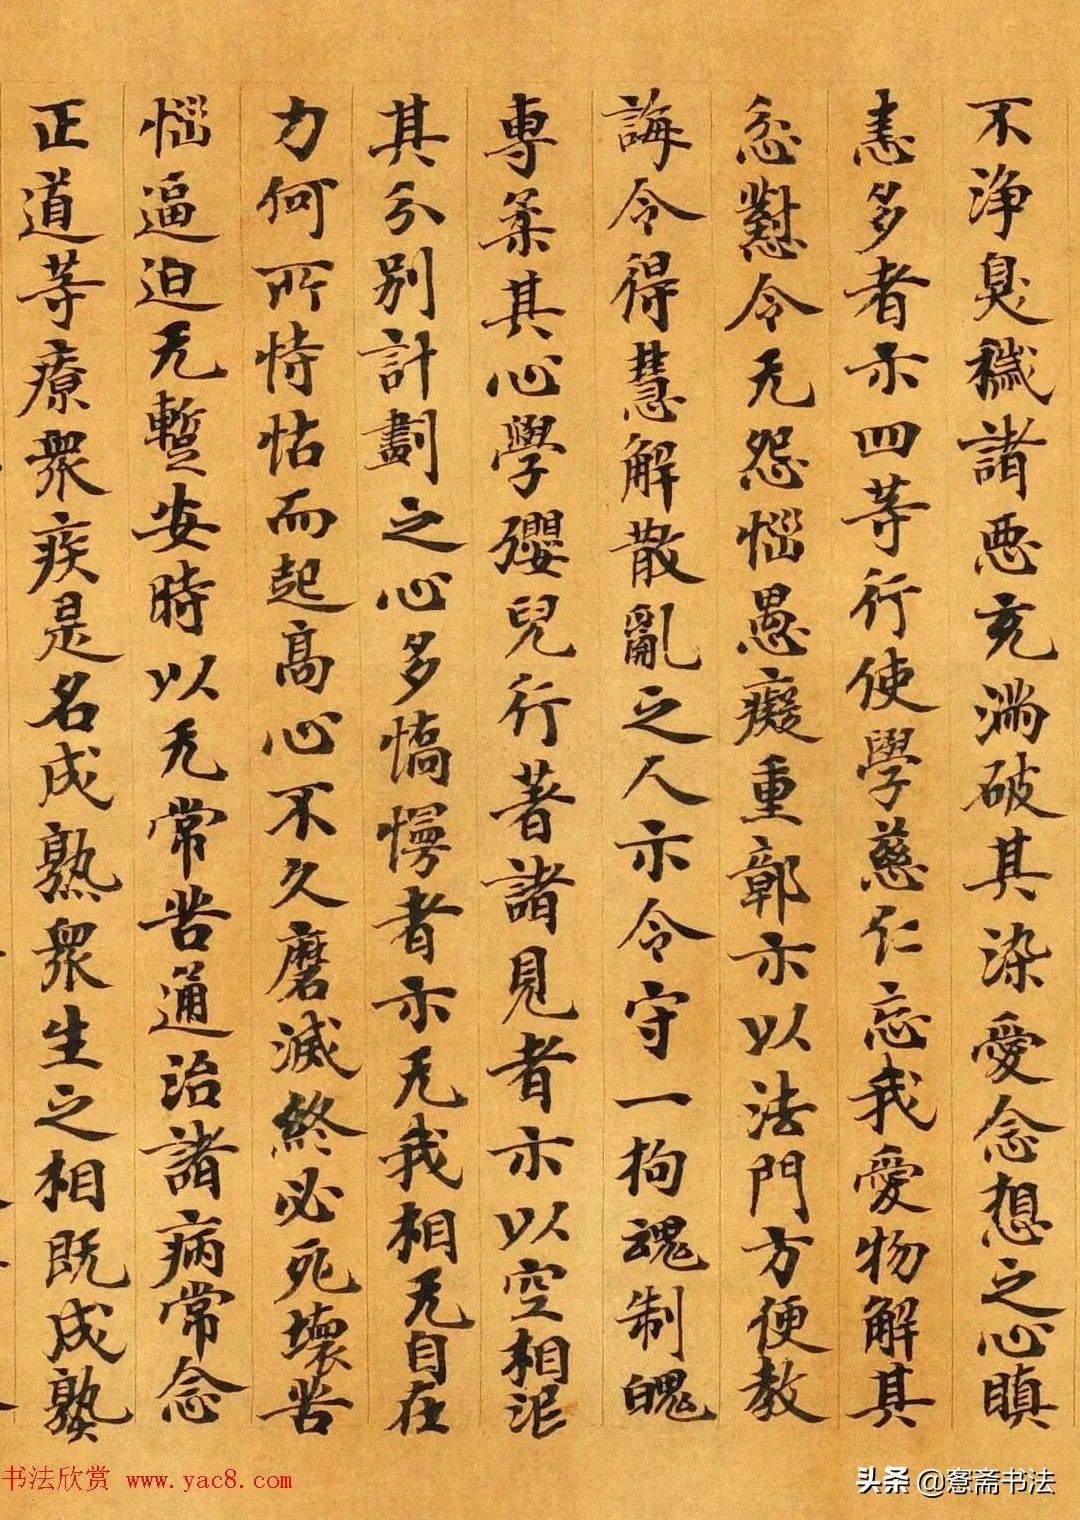 不淨臭穢諸惡充滿破其染愛念想之心瞋
恚多者亦四等行使學慈仁忘我愛物解其
忿懟令无怨惱愚癡重鄣亦以法門方便教
誨令得慧解散亂之人亦令守一拘魂制魄
專柔其心學孾兒行著諸見者亦以空相泯
其分别計劃之心多憍慢者亦无我相无自在
力何所恃怙而起高心不久磨滅終必死壞苦
惱逼迫无暫安時以无常苦通治諸病常念
正道等療衆疾是名成熟衆生之相既成熟
书法欣赏 www.yac8.com
头条 @愙斋书法